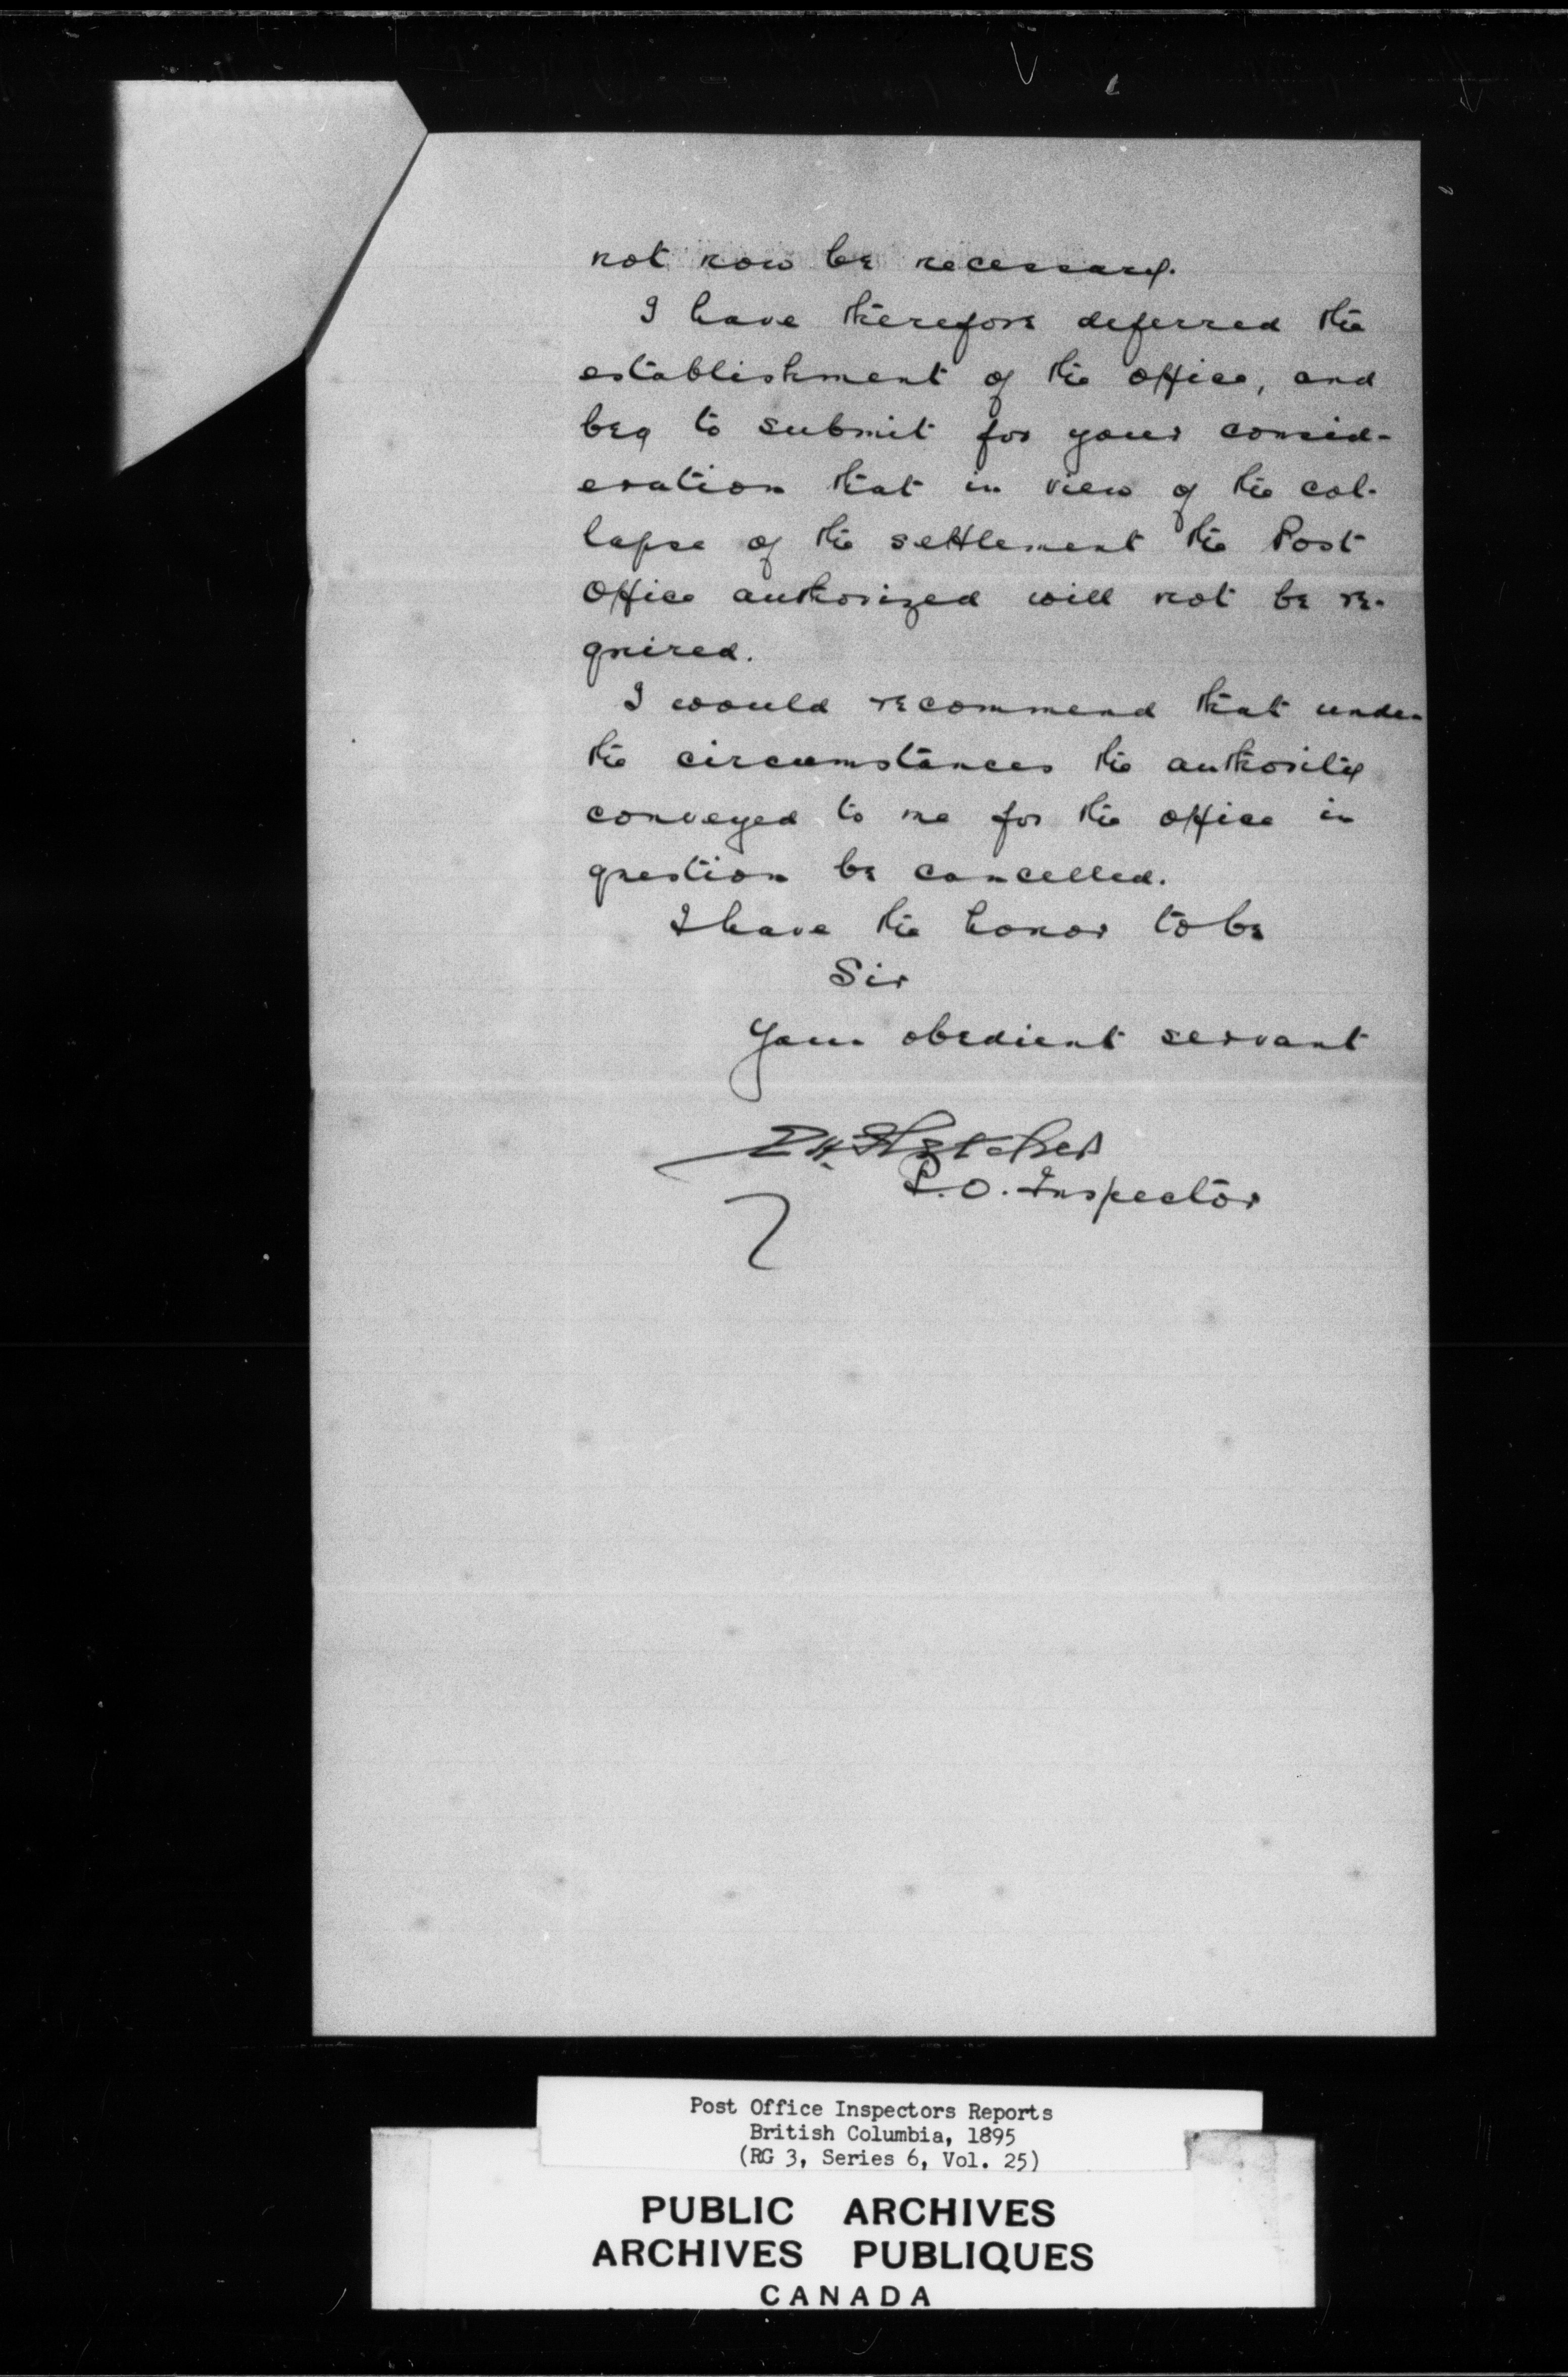 not now be necessary.
I have therefore deferred the
establishment of the office, and
beg to submit for your consid-
eration that in view of the col-
lapse of the settlement the Post
Office authorized will not be re-
quired.
I would recommend that under
the circumstances the authority
conveyed to me for the office in
question be cancelled.
I have the honor to be
Sir
Your obedient servant
E.H. Fletcher
P.O. Inspector
Post Office Inspectors Reports
British Columbia, 1895
(RG 3, Series 6, Vol. 25)
PUBLIC ARCHIVES
ARCHIVES PUBLIQUES
CANADA